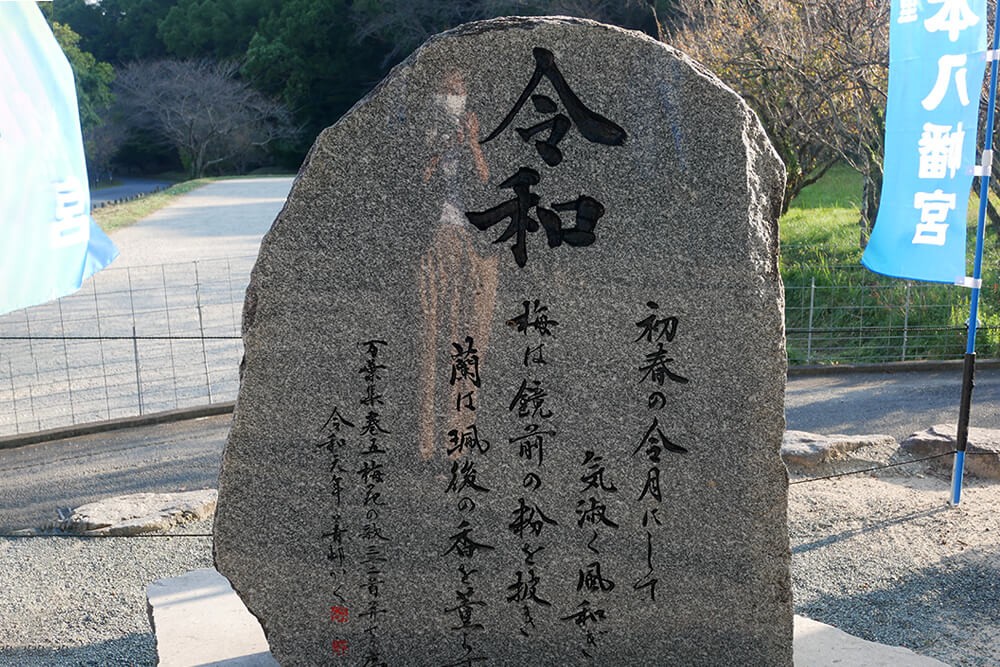 令和
初春の令月にして
気淑く風和ぎ
梅は鏡前の粉を披き
蘭は珮後の香を薫らす
万葉集巻五梅花の歌三二首并て序
令和元年
本八幡宮
宮